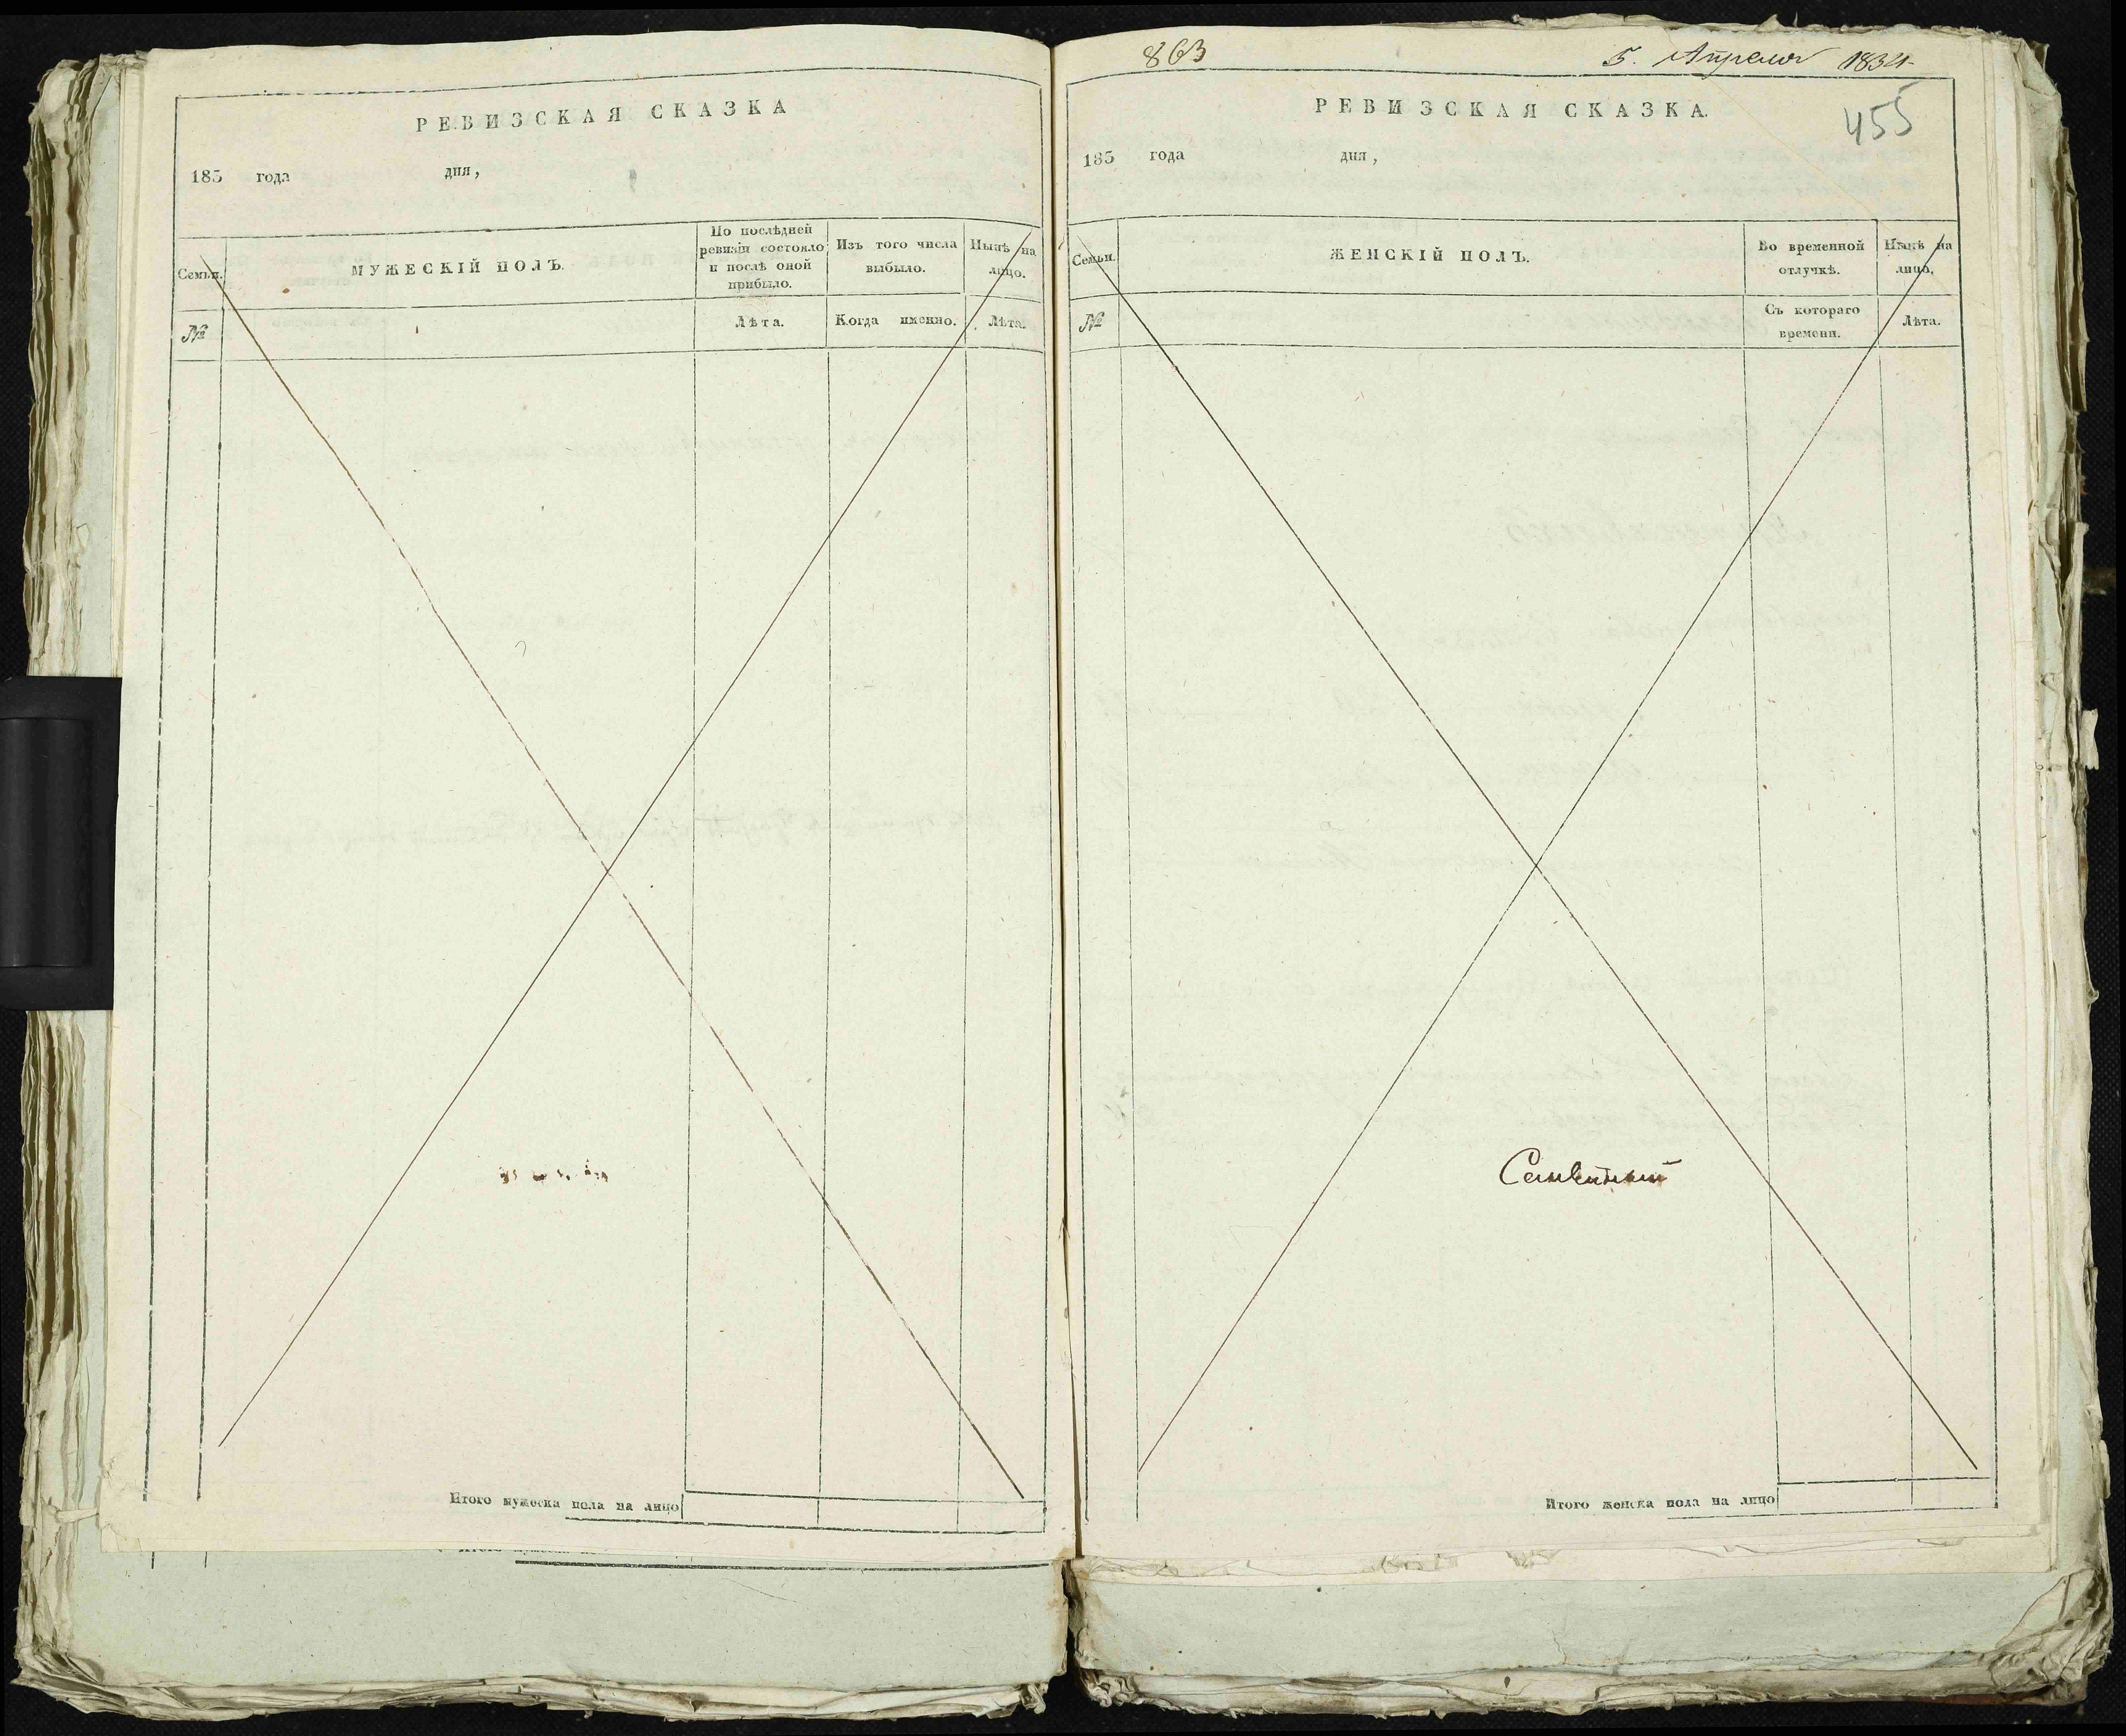 РЕВИЗСКАЯ СКАЗКА
183 года дня,
Семьи.
МУЖЕСКІЙ ПОЛЪ.
По послѣдней
ревизіи состояло
и послѣ оной
прибыло.
Изъ того числа
выбыло.
Нынѣ на
лицо.
№
Лѣта.
Когда именно.
Лѣта.
Итого мужеска пола на лицо
863
5. Апреля 1834
455
РЕВИЗСКАЯ СКАЗКА.
183 года дня,
Семьи.
ЖЕНСКІЙ ПОЛЪ.
Во временной
отлучкѣ.
Нынѣ на
лицо.
№
Съ котораго
времени.
Лѣта.
Итого женска пола на лицо